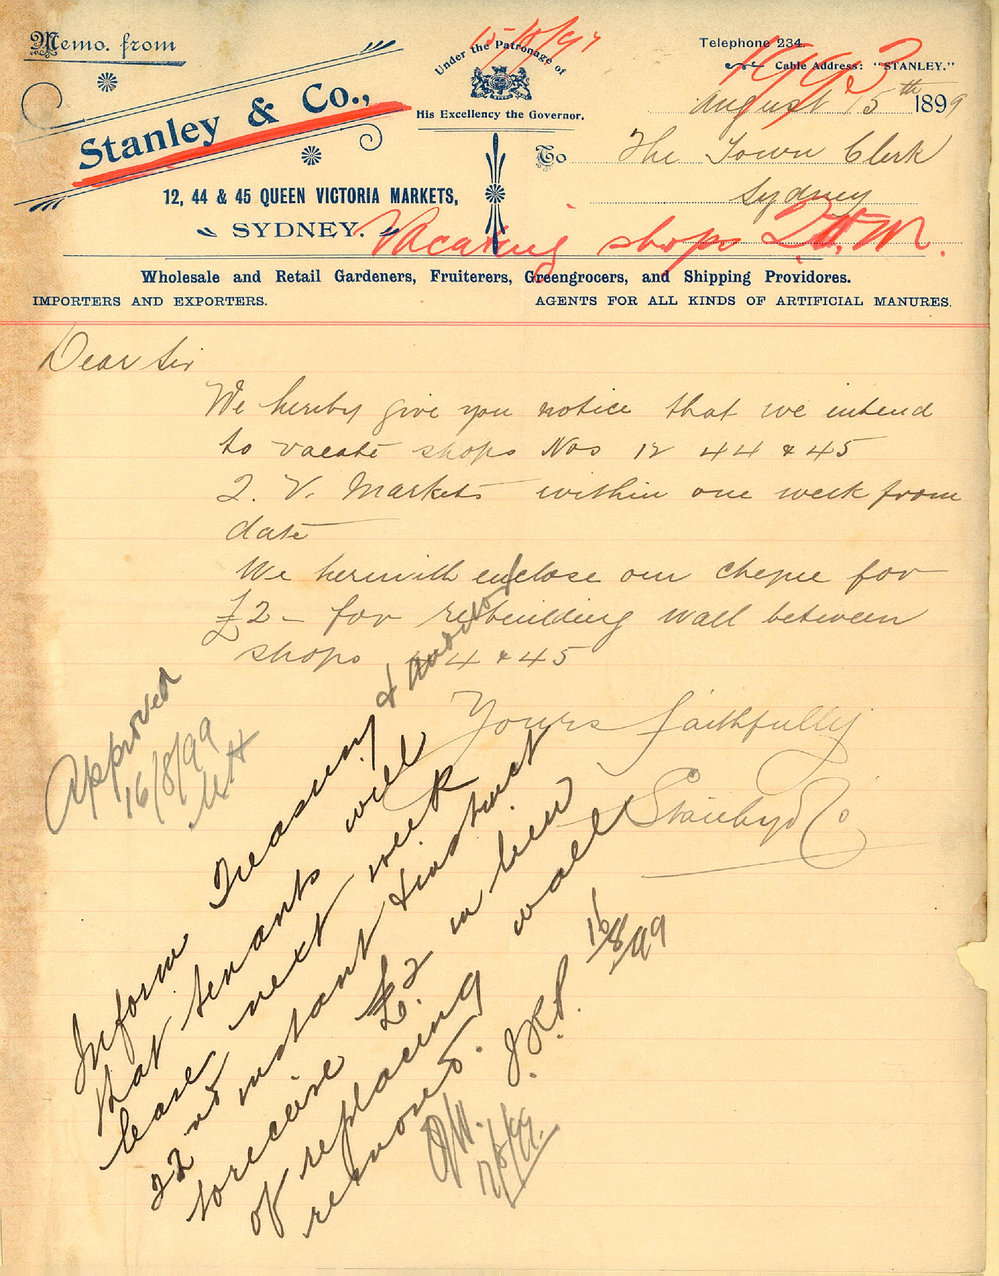 Memo. from
15/8/99
Under the Patronage of
His Excellency the Governor.
Telephone 234.
Cable Address: "STANLEY."
Stanley & Co.,
12, 44 & 45 QUEEN VICTORIA MARKETS,
SYDNEY.
August 15th 1899
To The Town Clerk
Sydney
Vacating shops Q.V.M.
Wholesale and Retail Gardeners, Fruiterers, Greengrocers, and Shipping Providores.
IMPORTERS AND EXPORTERS.
AGENTS FOR ALL KINDS OF ARTIFICIAL MANURES.
Dear Sir
We hereby give you notice that we intend
to vacate shops Nos 12 44 & 45
Q. V. Markets within one week from
date
We herewith enclose our cheque for
£2 - for rebuilding wall between
shops 44 & 45
Yours faithfully
Stanley & Co
Approved
16/8/99
Inform Treasury & Auditor
that tenants will
leave next week
22nd instant & instruct
to receive £2 in lieu
of replacing wall
removed.
16/8/99
17/8/99.